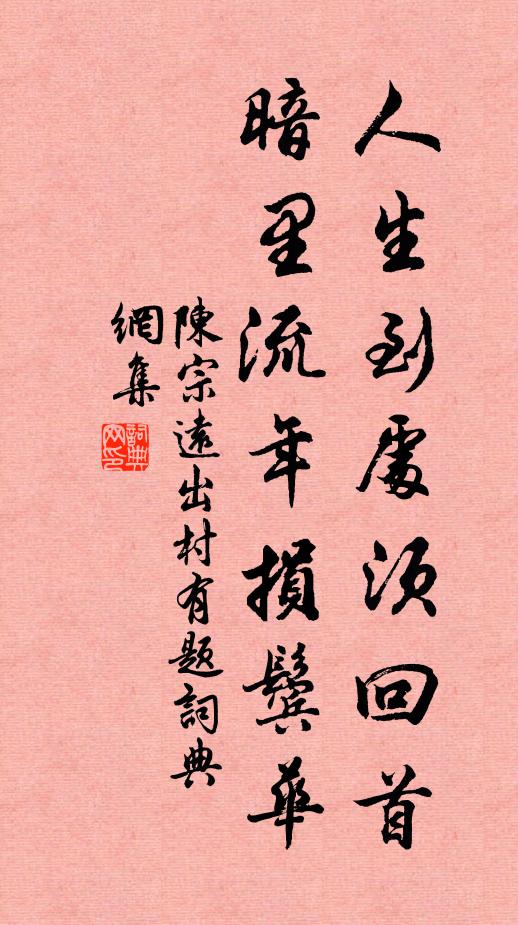 人生到處須回首
暗里流年損鬢華
陳宗遠出村有題詞典
網集
詞典網印